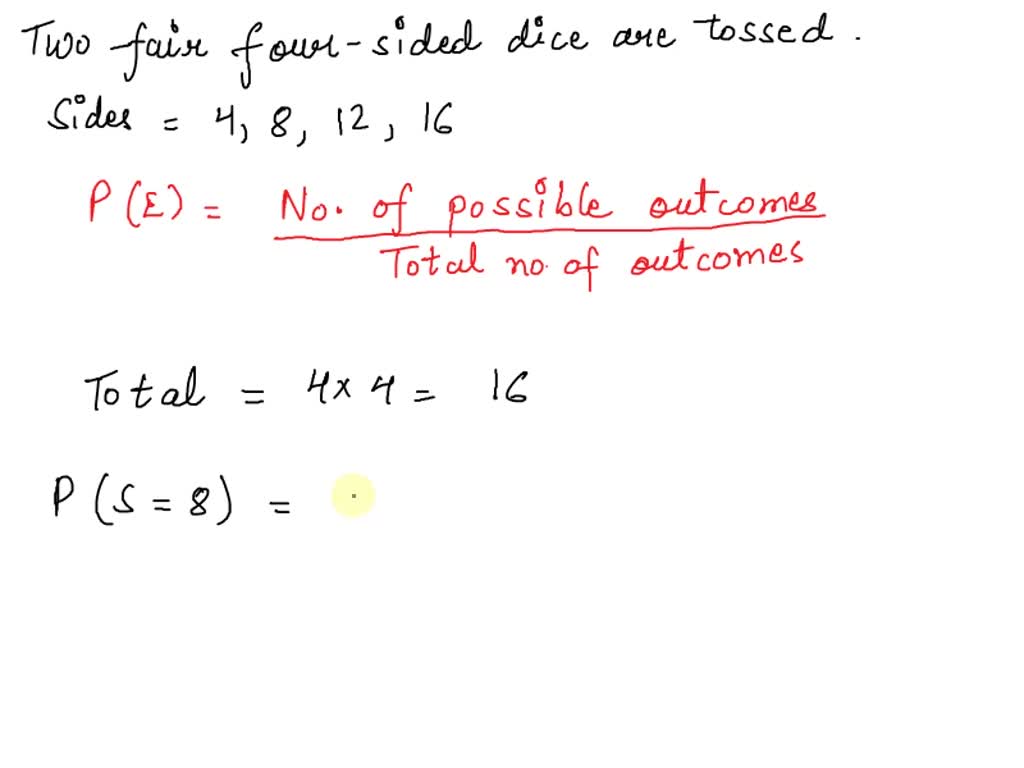 Two fair four-sided dice are tossed.
Sides = 4, 8, 12, 16
P(E) = No. of possible outcomes
Total no. of outcomes
Total = 4 x 4 = 16
P(S = 8) =